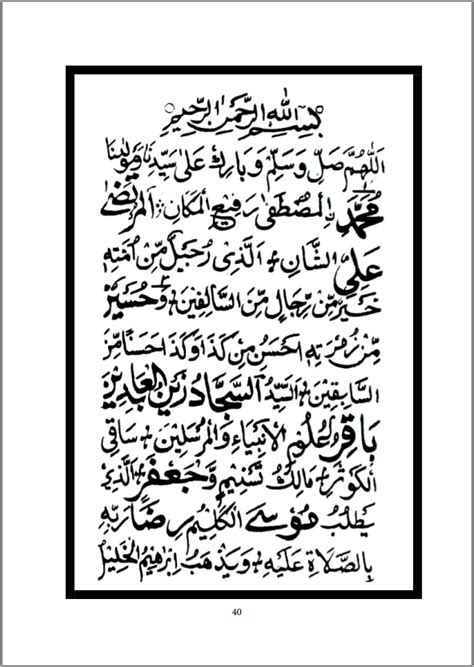 بِسْمِ اللهِ الرَّحْمٰنِ الرَّحِيْمِ
اَللّٰهُمَّ صَلِّ وَسَلِّمْ وَبَارِكْ عَلٰى سَيِّدِنَا وَمَوْلٰينَا
مُحَمَّدٍ الْمُصْطَفٰى رَفِيْعِ الْمَكَانِ الْمُرْتَضٰى
عَلِيِّ الشَّانِ الَّذِيْ رُجَيْلٌ مِّنْ اُمَّتِهٖ
خَيْرٌ مِّنْ رِجَالٍ مِّنَ السَّالِفِيْنَ وَحُسَيْنٌ
مِّنْ زُمْرَتِهٖ اَحْسَنُ مِنْ كَذَا وَكَذَا حَسَنًا مِّنَ
السَّابِقِيْنَ السَّيِّدِ السَّجَّادِ زَيْنِ الْعَابِدِيْنَ
بَاقِرِ عُلُوْمِ الْاَنْبِيَاءِ وَالْمُرْسَلِيْنَ سَاقِي
الْكَوْثَرِ مَالِكِ تَسْنِيْمٍ وَّجَعْفَرِ الَّذِيْ
يَطْلُبُ مُوْسَى الْكَلِيْمُ رِضَا رَبِّهٖ
بِالصَّلَاةِ عَلَيْهِ وَيَذْهَبُ اِبْرٰهِيْمُ الْخَلِيْلُ
40